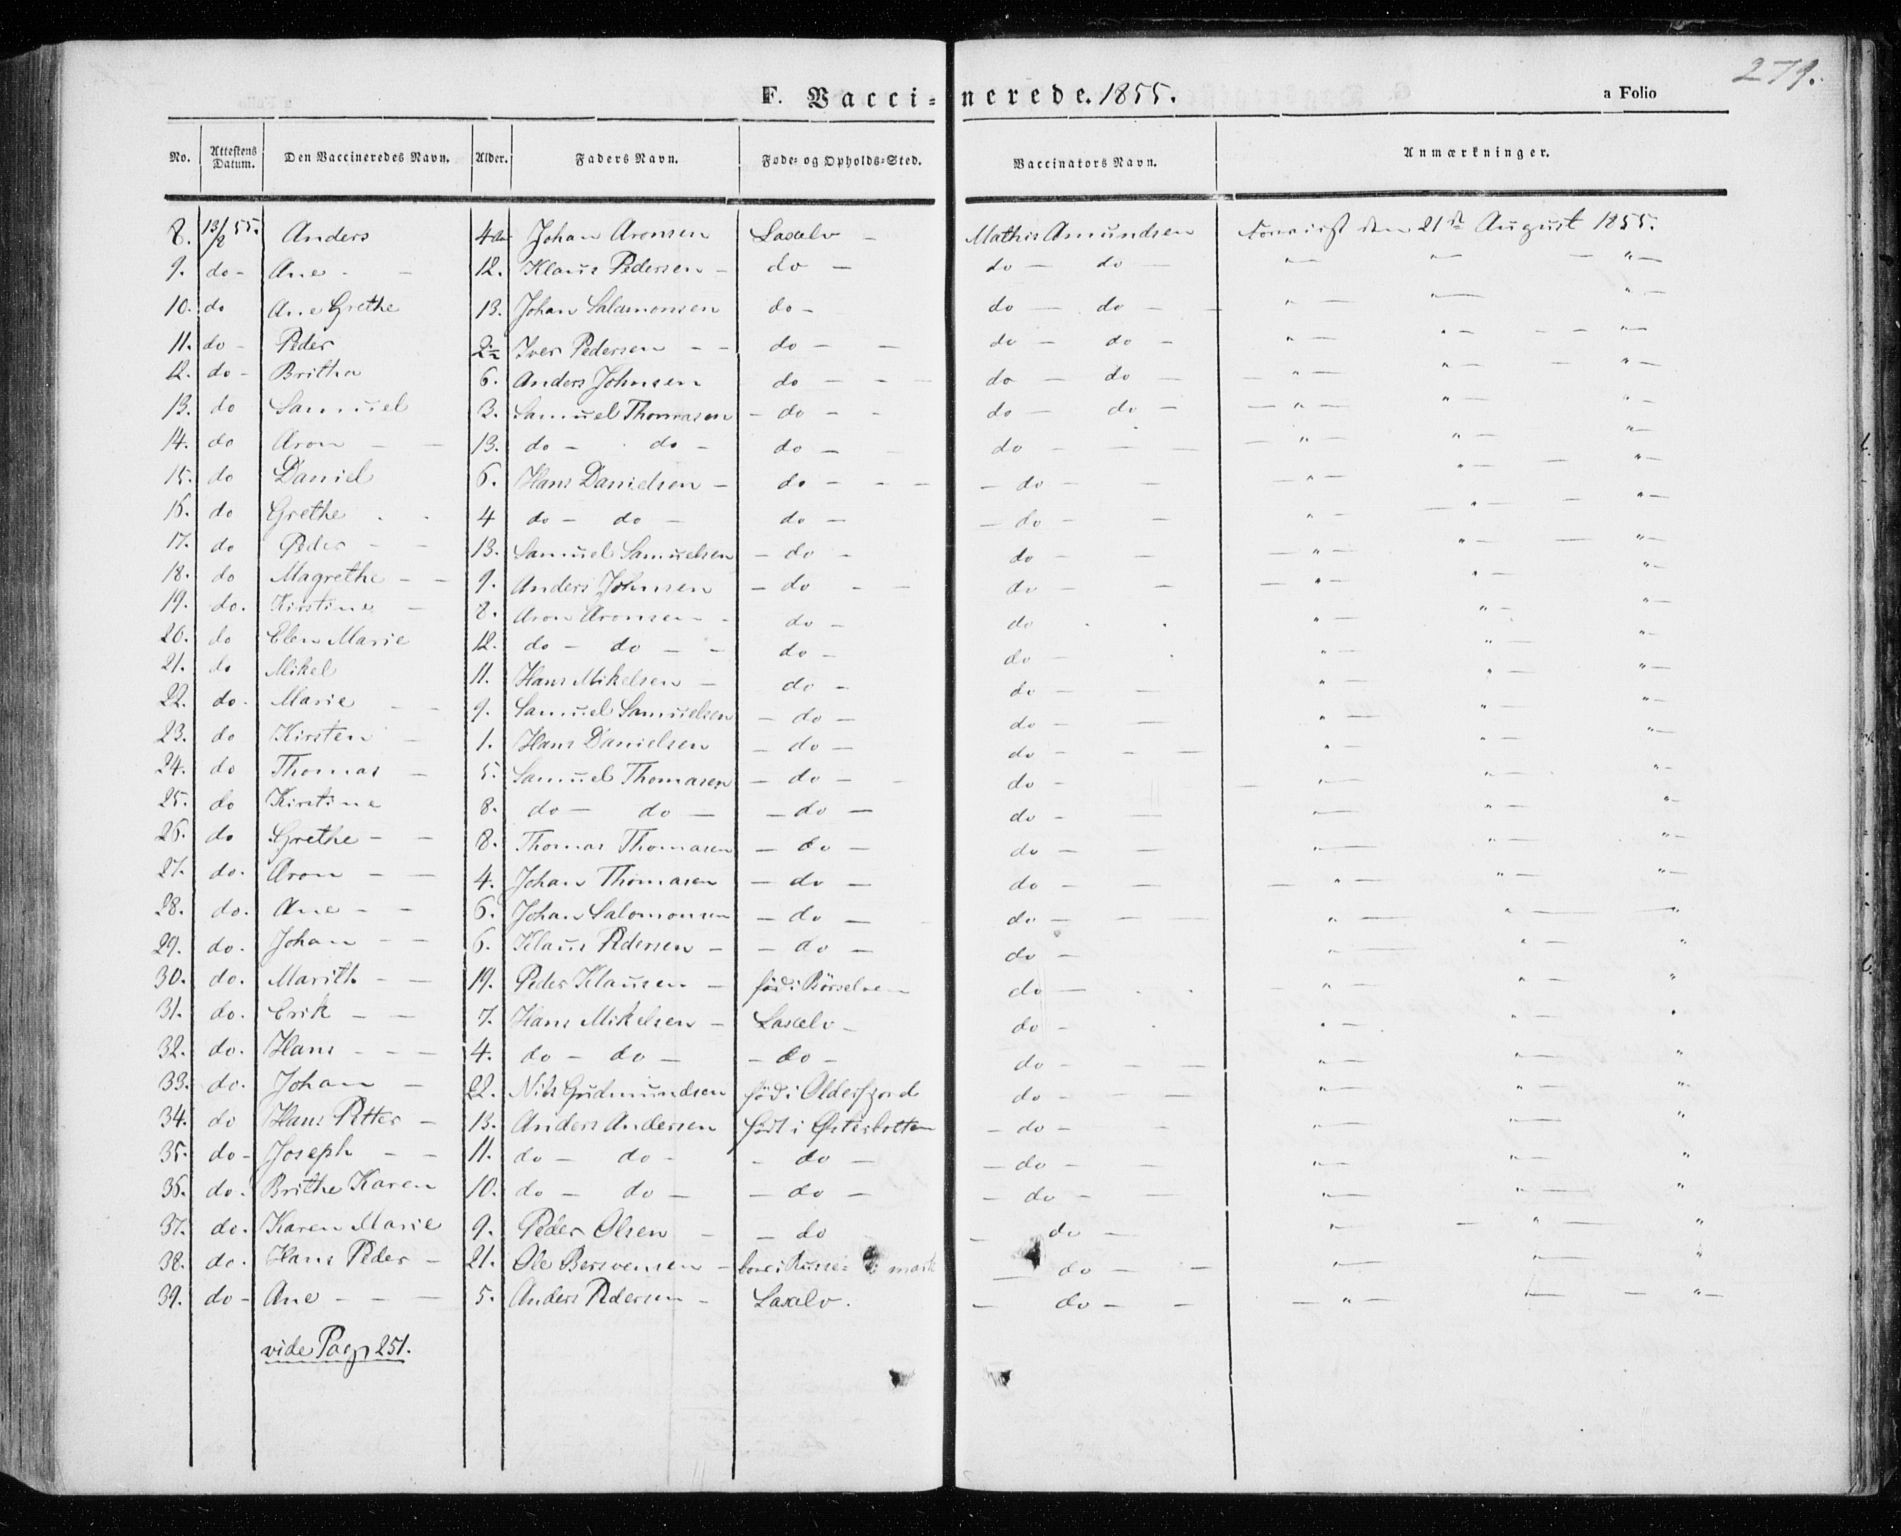 279.
F. Vacci=nerede. 1855. a Folio
No. Attestens Datum. Den Vaccineredes Navn. Alder. Faders Navn. Føde= og Opholds=Sted. Vaccinators Navn. Anmærkninger.
8. 13/8 55. Anders 4 Johan Aronsen Laxelv - Mathis Amundsen den 21de August 1855.
9. do - Ane - - 12. Klaus Pedersen - do - do - do - " - " - - " -
10. do Ane Grethe 13. Johan Salamonsen do - do - do - - " - " - " -
11. do - Peder 2 Iver Pedersen - - do - - do - do - " - " - - - " -
12. do - Britha 6. Anders Johnsen do - - - do - do - - " - " - - " -
13. do Samuel 3. Samuel Thomasen - do - - do - do - - " - " - " -
14. do Aron - - 13. do - do - do - do - - - - " - " - " -
15. do Daniel 6. Hans Danielsen - do - - - - do - - - " - " - - " -
16. do Grethe . . 4 do - do - do - - do - - " - - " - " -
17. do Peder - - 13. Samuel Samuelsen - do - do - - - " - " - - " -
18. do Magrethe - - 9. Anders Johnsen - do - - do - - - " - " - " -
19. do. Kirstine - 8. Aron Aronsen - - do - do . . " - " - " -
20. do Elen Marie 12. do - do - - do - do - . " - " - " -
21. do Mikel 11. Hans Mikelsen - do - do - - " - " - " -
22. do. Marie - - 9. Samuel Samuelsen - do - do - - " - " - " -
23. do Kirsten - 1. Hans Danielsen - do - do - - - " - " - " -
24. do Thomas - 5. Samuel Thomasen - do - - do - - " - " - " -
25. do Kirstine 8. do - do - - do - do - - " - " - " -
26. do Grethe - - 8. Thomas Thomasen - do - do - - " - " - " -
27. do. Aron - - 4. Johan Thomasen - do - do - - - " - " - " -
28. do. Ane - - 6. Johan Salomonsen - do - do - - - " - " - "
29. do. Johan - - 6. Klaus Pedersen - - do - do - " - " - "
30. do. Marith - - 19. Peder Klausen - fød i Börselven do - - - " - " - "
31. do. Erik - - 7. Hans Mikelsen - Laxelv - do - . . " - " - "
32. do. Hans - - - 4. do - do - - do - do - - - " - " - "
33. do. Johan - 22. Nils Gudmundsen fød i Olderfjord do - - - " - " - "
34. do Hans Petter - 13. Anders Andersen født i Østerbotten - do - - " - " - "
35. do - Joseph - - 11. do - do - - do - - do - - " - " - "
36. do. Brithe Karen 10. do - do - - do - - do - - " - " - "
37. do. Karen Marie 9. Peder Olsen - - do - do - " - - " - "
38. do. Hans Peder - 21. Ole Bersvensen - - do - - " - " - "
39. do - Ane - - - 5. Anders Pedersen - Laxelv. - do - - - " - " - - " -
vide Pag 251.